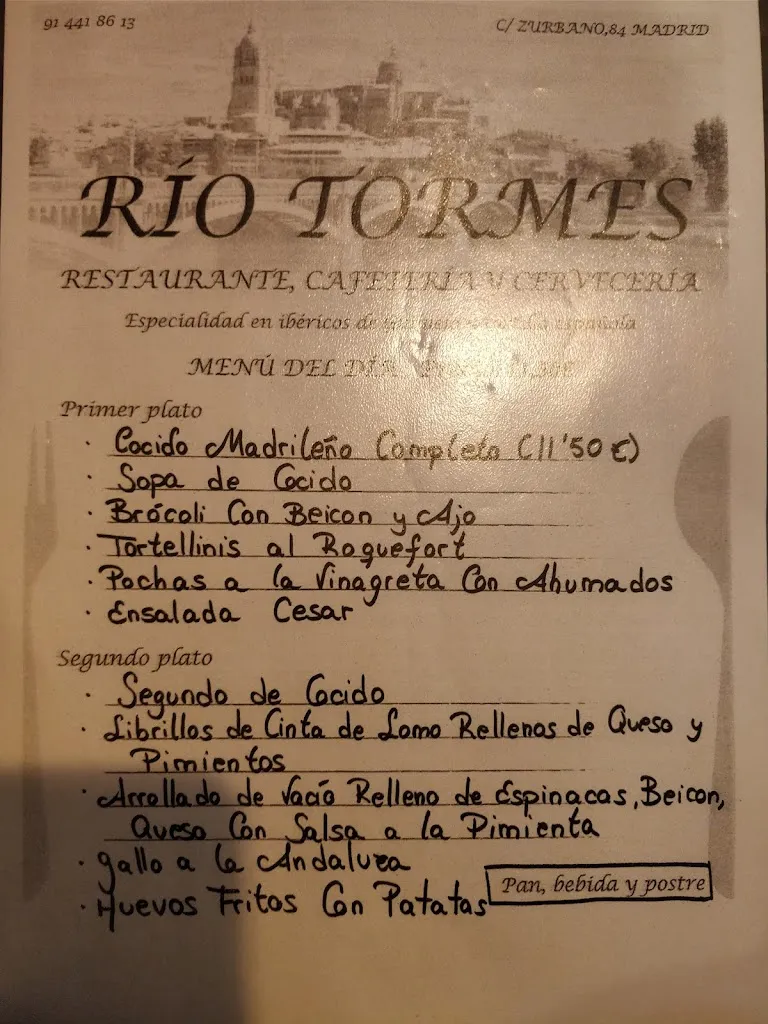 91 441 86 13
C/ ZURBANO,84 MADRID
RÍO TORMES
RESTAURANTE, CAFETERÍA Y CERVECERÍA
Especialidad en ibéricos de española
MENÚ DEL DÍA
Primer plato
· Cocido Madrileño Completo (11'50 €)
· Sopa de Cocido
· Brócoli Con Beicon y Ajo
· Tortellinis al Roquefort
· Pochas a la Vinagreta Con Ahumados
· Ensalada Cesar
Segundo plato
· Segundo de Cocido
· Librillos de Cinta de Lomo Rellenos de Queso y
Pimientos
· Arrollado de Vacío Relleno de Espinacas, Beicon,
Queso Con Salsa a la Pimienta
· Gallo a la Andaluza
Pan, bebida y postre
· Huevos Fritos Con Patatas